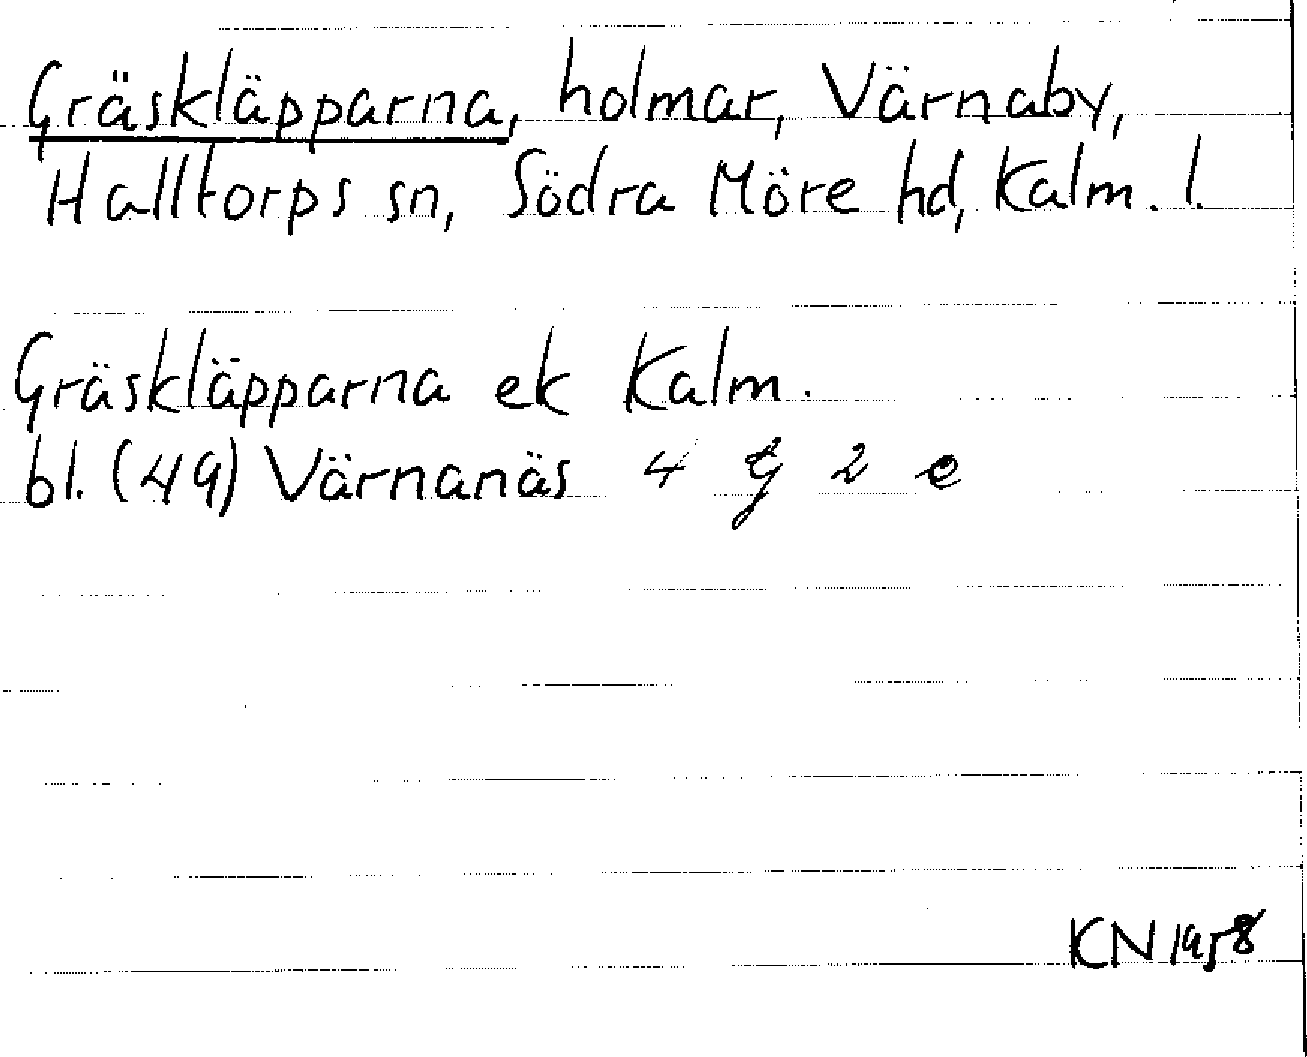 Gräskläpparna, holmar, Värnaby,
Halltorps sn, Södra Möre hd, Kalm. l.
Gräskläpparna ek Kalm.
bl. (49) Värnanäs 4 g 2 e
KN 1958